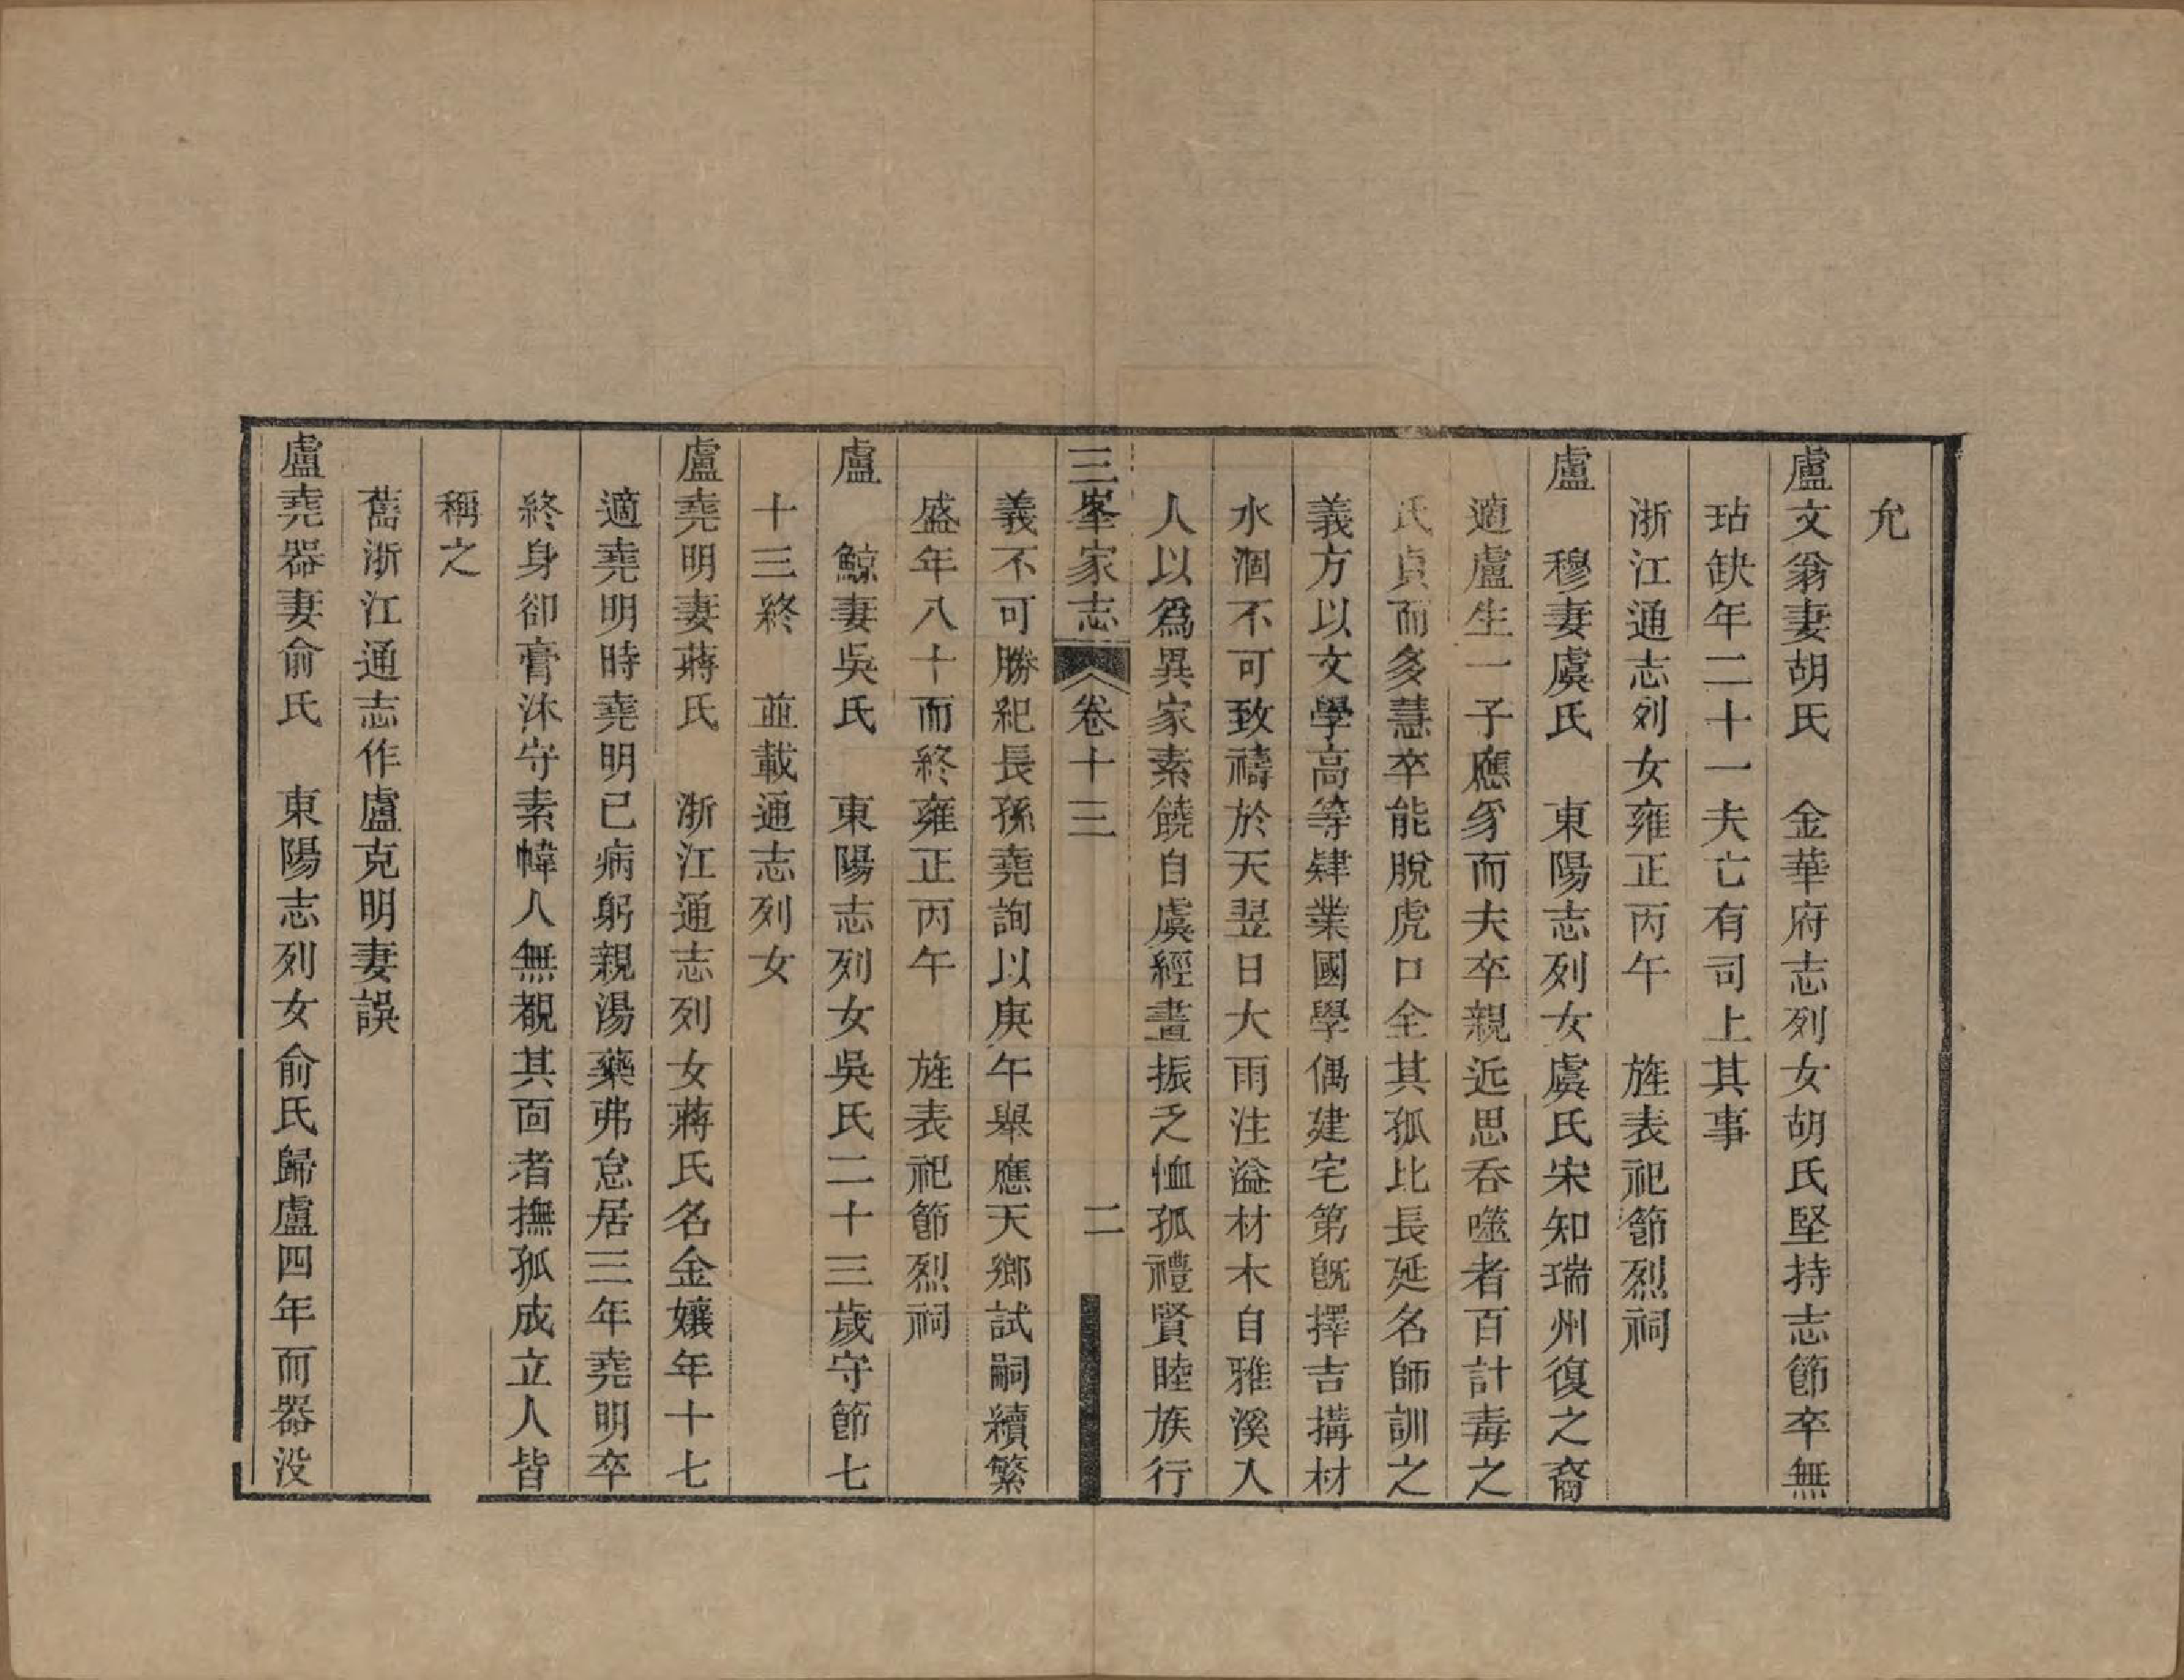 允
盧文翁妻胡氏　金華府志列女胡氏堅持志節卒無
玷缺年二十一夫亡有司上其事
浙江通志列女雍正丙午　旌表祀節烈祠
盧　穆妻虞氏　東陽志列女虞氏宋知瑞州復之裔
適盧生一子應豸而夫卒親近思吞噬者百計毒之
氏貞而多慧卒能脫虎口全其孤比長延名師訓之
義方以文學高等肄業國學偶建宅第旣擇吉搆材
水涸不可致禱於天翌日大雨注溢材木自雅溪入
人以爲異家素饒自虞經畫振乏恤孤禮賢睦族行
三峯家志　卷十三　二
義不可勝紀長孫堯詢以庚午舉應天鄉試嗣續繁
盛年八十而終雍正丙午　旌表祀節烈祠
盧　鯨妻吳氏　東陽志列女吳氏二十三歲守節七
十三終　並載通志列女
盧堯明妻蔣氏　浙江通志列女蔣氏名金孃年十七
適堯明時堯明已病躬親湯藥弗怠居三年堯明卒
終身卻膏沐守素幃人無覩其面者撫孤成立人皆
稱之
舊浙江通志作盧克明妻誤
盧堯器妻俞氏　東陽志列女俞氏歸盧四年而器没